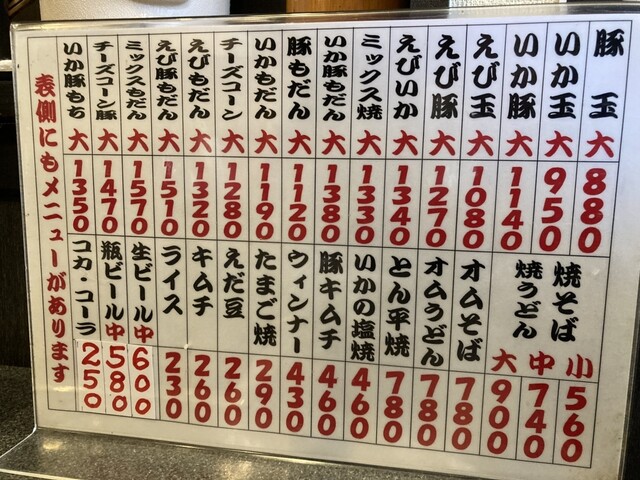 豚玉 大 880
いか玉 大 950
いか豚 大 1140
えび玉 大 1080
えび豚 大 1270
えびいか 大 1340
ミックス焼 大 1330
いか豚もだん 大 1380
豚もだん 大 1120
いかもだん 大 1190
チーズコーン 大 1280
えびもだん 大 1320
えび豚もだん 大 1510
ミックスもだん 大 1570
チーズコーン豚 大 1470
いか豚もち 大 1350
焼そば
焼うどん
小 560
中 740
大 900
オムそば 780
オムうどん 780
とん平焼 780
いかの塩焼 460
豚キムチ 460
ウィンナー 430
たまご焼 290
えだ豆 260
キムチ 260
ライス 230
生ビール中 600
瓶ビール中 580
コカ・コーラ 250
表側にもメニューがあります